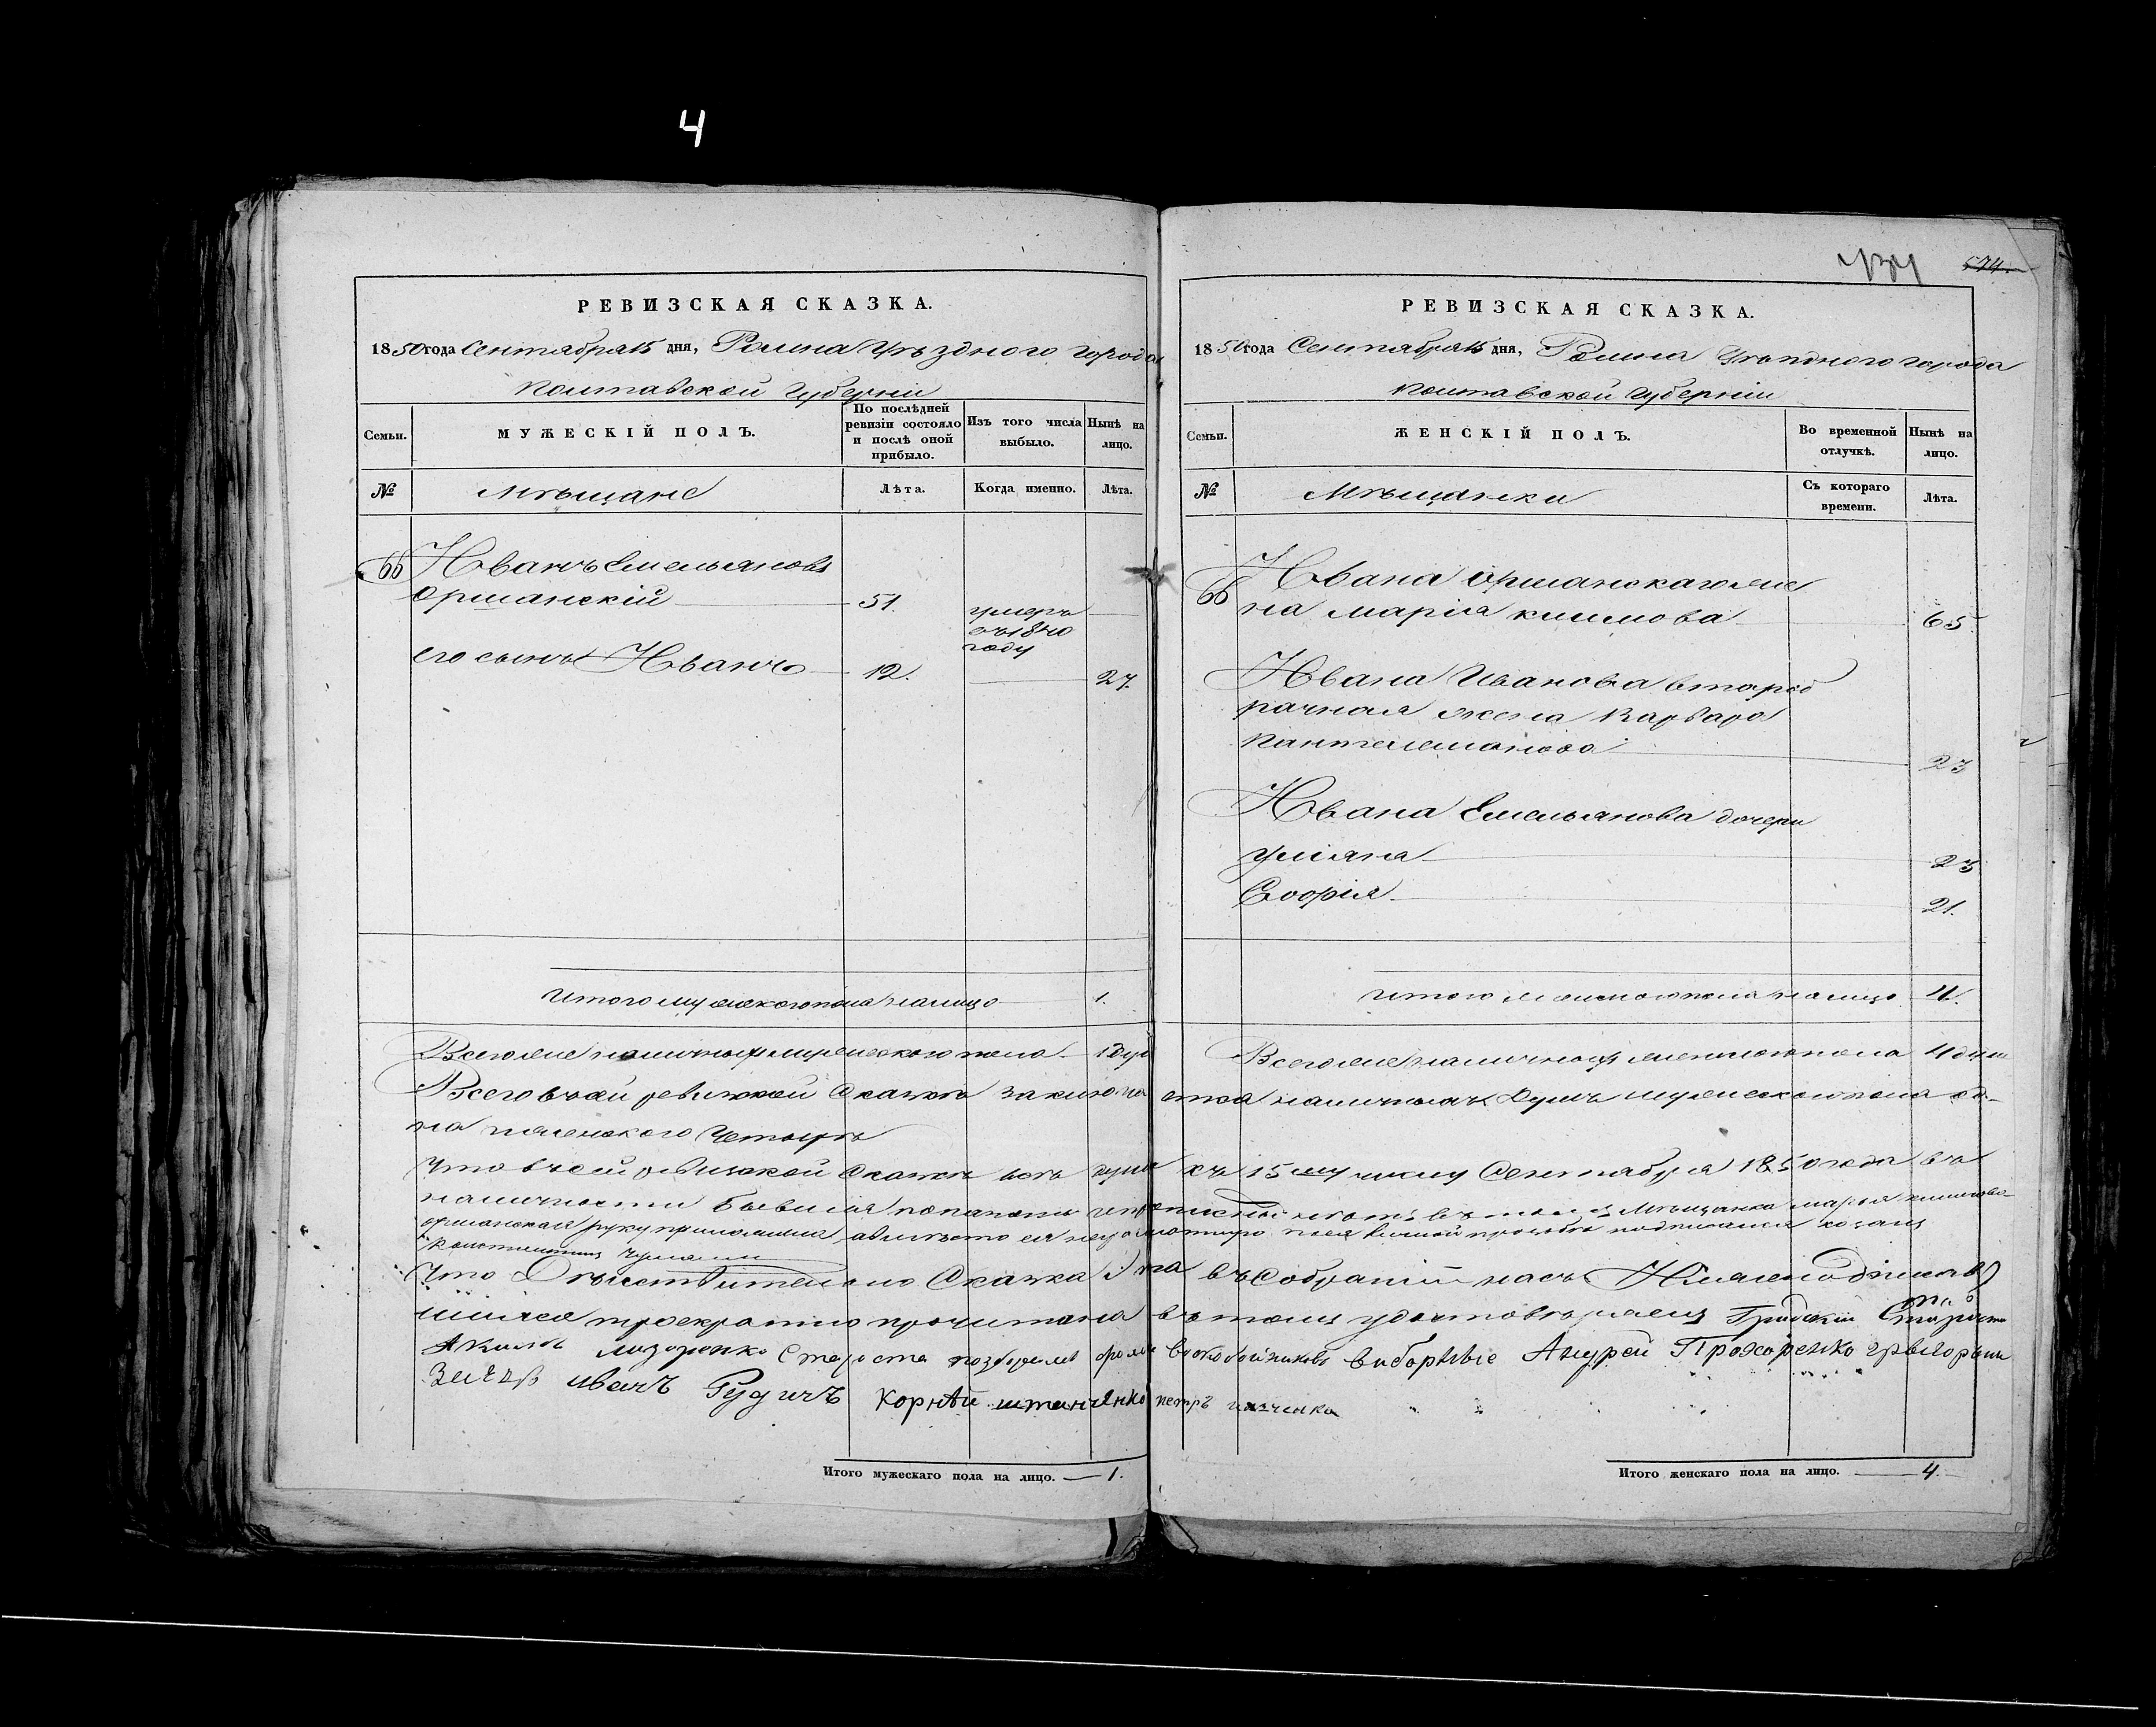 4
574.
РЕВИЗСКАЯ СКАЗКА.
1850 года Сентября 15 дня, Ромна Уѣзднаго города
Полтавской Губерніи
Семьи.
МУЖЕСКІЙ ПОЛЪ.
По послѣдней ревизіи состояло и послѣ оной прибыло.
Изъ того числа выбыло.
Нынѣ на лицо.
№
Мѣщане
Лѣта.
Когда именно.
Лѣта.
66 Иванъ Емельяновъ
Орманскій 51.
умеръ
въ 1840
году
его сынъ Иванъ 12. 27.
Итого мужескаго пола налицо 1.
РЕВИЗСКАЯ СКАЗКА.
1850 года Сентября 15 дня, Ромна Уѣзднаго города
Полтавской Губерніи
Семьи.
ЖЕНСКІЙ ПОЛЪ.
Во временной отлучкѣ.
Нынѣ на лицо.
№
Мѣщанки
Съ котораго времени.
Лѣта.
66 Ивана Орманскаго же
на Марія Климова 65.
Ивана Иванова второб
рачная жена Варвара
Пантелемонова 23
Ивана Емельянова дочери
Уліяна 23
Софія 21.
Итого женскаго пола налицо 4.
Всего же наличныхъ мужескаго пола 1 душ
Всего же наличныхъ женскаго пола 4 душ
Всего въ сей ревизской Сказкѣ заключа ется наличныхъ Душъ мужескаго пола од-
на женскаго Четыре
Что въ сей ревизской Сказкѣ всѣ души къ 15му числу Сентября 1850 года въ
наличности бывшія показаны и ... въ томъ Мѣщанка Марья Климова
Орманская руку приложила, а вмѣсто ея неграмотную по ея личной прозьбѣ подписался козакъ
Константинъ
Что Дѣйствительно Сказка Эта въ Собраніи насъ Нижеподписав
шихся троекратно прочитана въ томъ удостовѣряемъ Градскій Староста
Акимъ Лазоренко Староста Воскобойниковъ выборные Андрей Прохоренко Григорьи
Заецъ Иванъ Рудичъ Корнѣй Штанченко петръ
Итого мужескаго пола на лицо. 1.
Итого женскаго пола на лицо. 4.